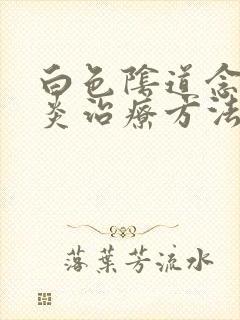 白色陰道念
炎治療方法
落葉芳流水